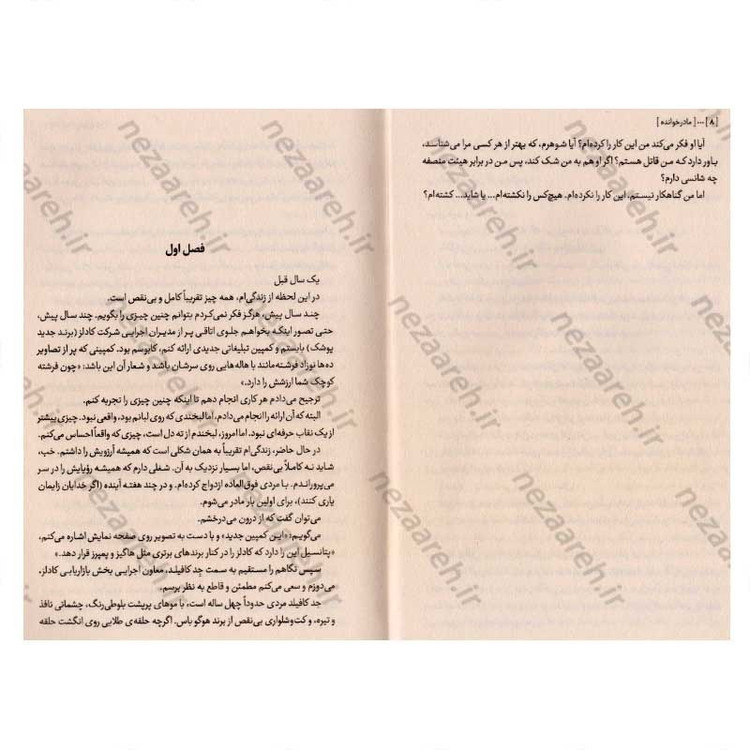 [ ۸ ] ... [ مادرخوانده ]
آیا او فکر می‌کند من این کار را کرده‌ام؟ آیا شوهرم، که بهتر از هر کسی مرا می‌شناسد،
باور دارد که من قاتل هستم؟ اگر او هم به من شک کند، پس من در برابر هیئت منصفه
چه شانسی دارم؟
اما من گناهکار نیستم. این کار را نکرده‌ام. هیچ‌کس را نکشته‌ام... یا شاید... کشته‌ام؟
فصل اول
یک سال قبل
در این لحظه از زندگی‌ام، همه چیز تقریباً کامل و بی‌نقص است.
چند سال پیش، هرگز فکر نمی‌کردم بتوانم چنین چیزی را بگویم. چند سال پیش،
حتی تصور اینکه بخواهم جلوی اتاقی پر از مدیران اجرایی شرکت کادلز (برند جدید
پوشک) بایستم و کمپین تبلیغاتی جدیدی ارائه کنم، کابوسم بود. کمپینی که پر از تصاویر
ده‌ها نوزاد فرشته‌مانند با هاله‌هایی روی سرشان باشد و شعار آن این باشد: «چون فرشته
کوچک شما ارزشش را دارد.»
ترجیح می‌دادم هر کاری انجام دهم تا اینکه چنین چیزی را تجربه کنم.
البته که آن ارائه را انجام می‌دادم. اما لبخندی که روی لبانم بود، واقعی نبود. چیزی بیشتر
از یک نقاب حرفه‌ای نبود. اما امروز، لبخندم از ته دل است، چیزی که واقعاً احساس می‌کنم.
در حال حاضر، زندگی‌ام تقریباً به همان شکلی است که همیشه آرزویش را داشتم. خب،
شاید نه کاملاً بی‌نقص، اما بسیار نزدیک به آن. شغلی دارم که همیشه رؤیایش را در سر
می‌پروراندم. با مردی فوق‌العاده ازدواج کرده‌ام. و در چند هفته آینده (اگر خدایان زایمان
یاری کنند)، برای اولین بار مادر می‌شوم.
می‌توان گفت که از درون می‌درخشم.
می‌گویم: «این کمپین جدید» و با دست به تصویر روی صفحه نمایش اشاره می‌کنم،
«پتانسیل این را دارد که کادلز را در کنار برندهای برتری مثل هاگیز و پمپرز قرار دهد.»
سپس نگاهم را مستقیم به سمت جِد کافیلد، معاون اجرایی بخش بازاریابی کادلز،
می‌دوزم و سعی می‌کنم مطمئن و قاطع به نظر برسم.
جد کافیلد مردی حدوداً چهل ساله است، با موهای پرپشت بلوطی‌رنگ، چشمانی نافذ
و تیره، و کت‌وشلواری بی‌نقص از برند هوگو باس. اگرچه حلقه‌ی طلایی روی انگشت حلقه
nezaareh.ir
nezaareh.ir
nezaareh.ir
nezaareh.ir
nezaareh.ir
nezaareh.ir
nezaareh.ir
nezaareh.ir
nezaareh.ir
nezaareh.ir